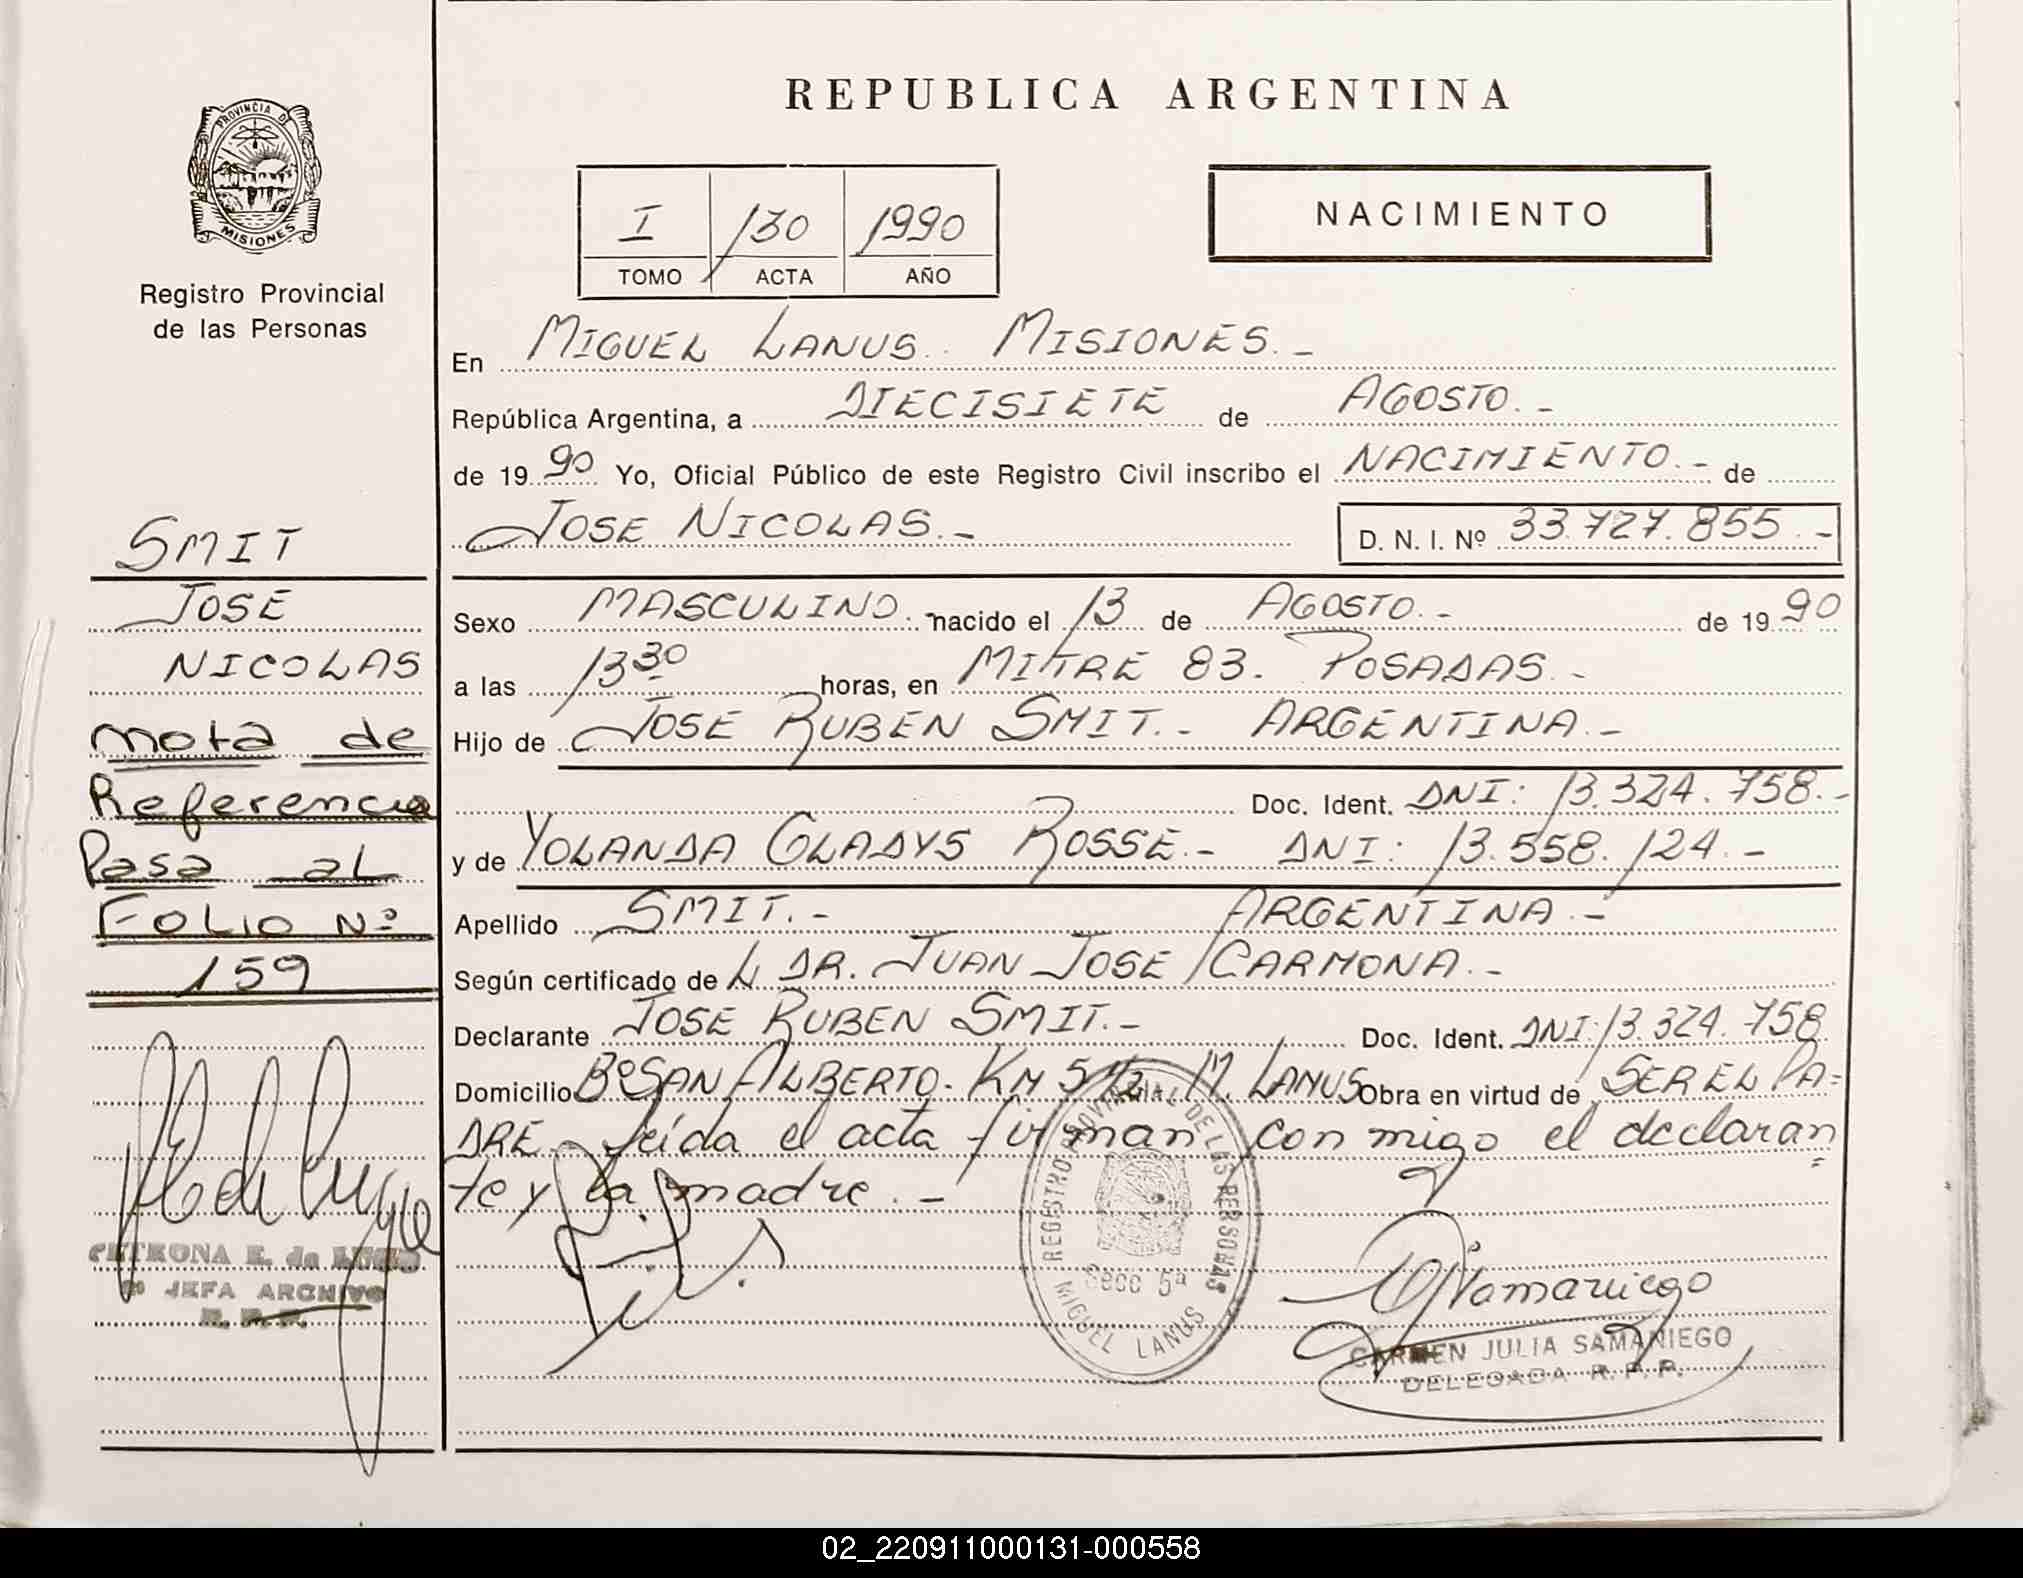 REPUBLICA ARGENTINA
PROVINCIA DE
MISIONES
Registro Provincial
de las Personas
I 130 1990
TOMO ACTA AÑO
NACIMIENTO
En MIGUEL LANUS. MISIONES.-
República Argentina, a DIECISIETE de AGOSTO.-
de 1990 Yo, Oficial Público de este Registro Civil inscribo el NACIMIENTO.- de
JOSE NICOLAS.- D. N. I. Nº 33.727.855.-
SMIT
JOSE
NICOLAS
Nota de
Referencia
Pasa al
Folio Nº
159
Sexo MASCULINO.- nacido el 13 de AGOSTO.- de 1990
a las 13 30 horas, en MITRE 83. POSADAS.-
Hijo de JOSE RUBEN SMIT.- ARGENTINA.-
Doc. Ident. DNI: 13.324.758.-
y de YOLANDA GLADYS ROSSE.- DNI: 13.558.124.-
Apellido SMIT.- ARGENTINA.-
Según certificado de L DR. JUAN JOSE CARMONA.-
Declarante JOSE RUBEN SMIT.- Doc. Ident. DNI: 13.324.758
Domicilio Bº SAN ALBERTO. KM 5 1/2 M. LANUS Obra en virtud de SER EL PA=
DRE.- Leída el acta firman conmigo el declaran=
te y la madre.-
REGISTRO PROVINCIAL DE LAS PERSONAS
Secc 5ª
MIGUEL LANUS
PETRONA E. de LUGO
JEFA ARCHIVO
R. P. P.
CARMEN JULIA SAMANIEGO
DELEGADA R. P. P.
02_220911000131-000558